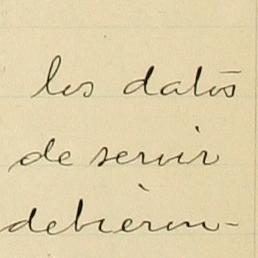 los datos
de servir
debieron-